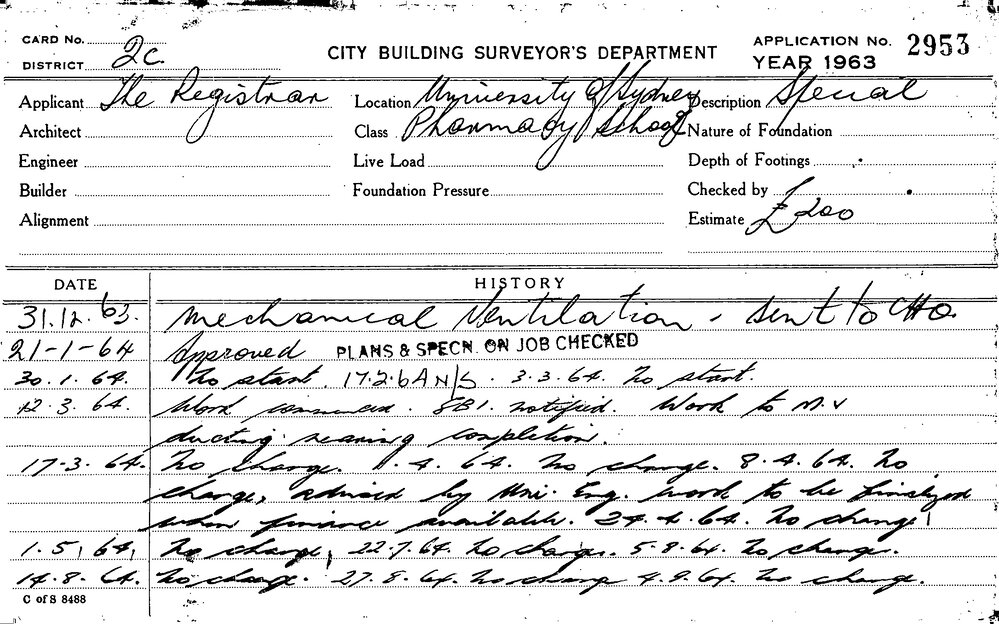 CARD No.
DISTRICT 2c.
CITY BUILDING SURVEYOR'S DEPARTMENT
APPLICATION No. 2953
YEAR 1963
Applicant The Registrar Location University of Sydney Description Special
Architect Class Pharmacy School Nature of Foundation
Engineer Live Load Depth of Footings
Builder Foundation Pressure Checked by
Alignment Estimate £ 200
DATE HISTORY
31.12.63. Mechanical Ventilation - sent to CHO.
21-1-64 Approved PLANS & SPECN. ON JOB CHECKED
30.1.64. No start. 17.2.64 N/S. 3.3.64. No start.
12.3.64. Work commenced. notified. Work to M.V
ducting nearing completion.
17-3.64. No change. 1.4.64. No change. 8.4.64. No
change, advised by Uni. Eng. work to be finalized
when finance available. 24.4.64. No change.
1.5.64. No change. 22.7.64. No change. 5.8.64. No change.
14.8.64. No change. 27.8.64. No change 4.9.64. No change.
C of S 8488